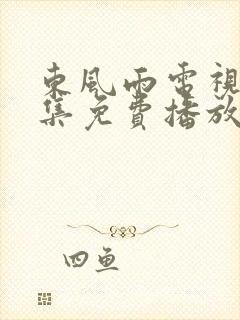 東風雨電視
集免費播放
四魚